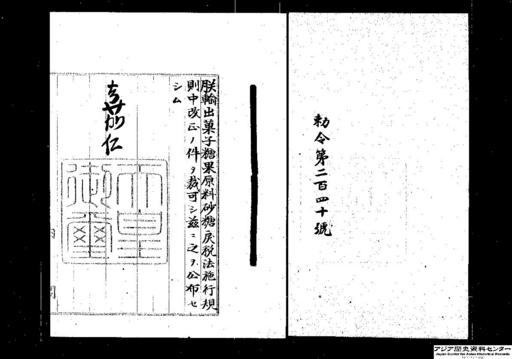 勅令第二百四十號
朕輸出菓子糖果原料砂糖戻税法施行規
則中改正ノ件ヲ裁可シ茲ニ之ヲ公布セ
シム
嘉仁
天皇
御璽
内
閣
アジア歴史資料センター
Japan Center for Asian Historical Records